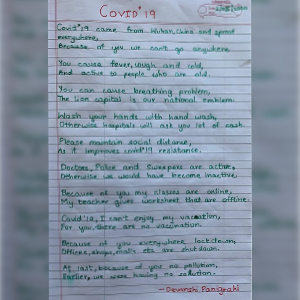 Covid'19
Covid'19 came from Wuhan, China and spread
everywhere,
Because of you we can't go anywhere.
You cause fever, cough and cold,
And active to people who are old.
You can cause breathing problem,
The lion capital is our national emblem.
Wash your hands with hand wash,
Otherwise hospitals will ask you lot of cash.
Please maintain social distance,
As it improves covid'19 resistance.
Doctors, Police and Sweepers are active,
Otherwise we would have become inactive.
Because of you my classes are online,
My teacher gives worksheet that are offline.
Covid'19, I can't enjoy my vacation,
For you, there are no vaccination.
Because of you everywhere lockdown,
Offices, shops, malls etc are shutdown.
At last, because of you no pollution,
Earlier, we were having no solution.
- Devanshi Panigrahi